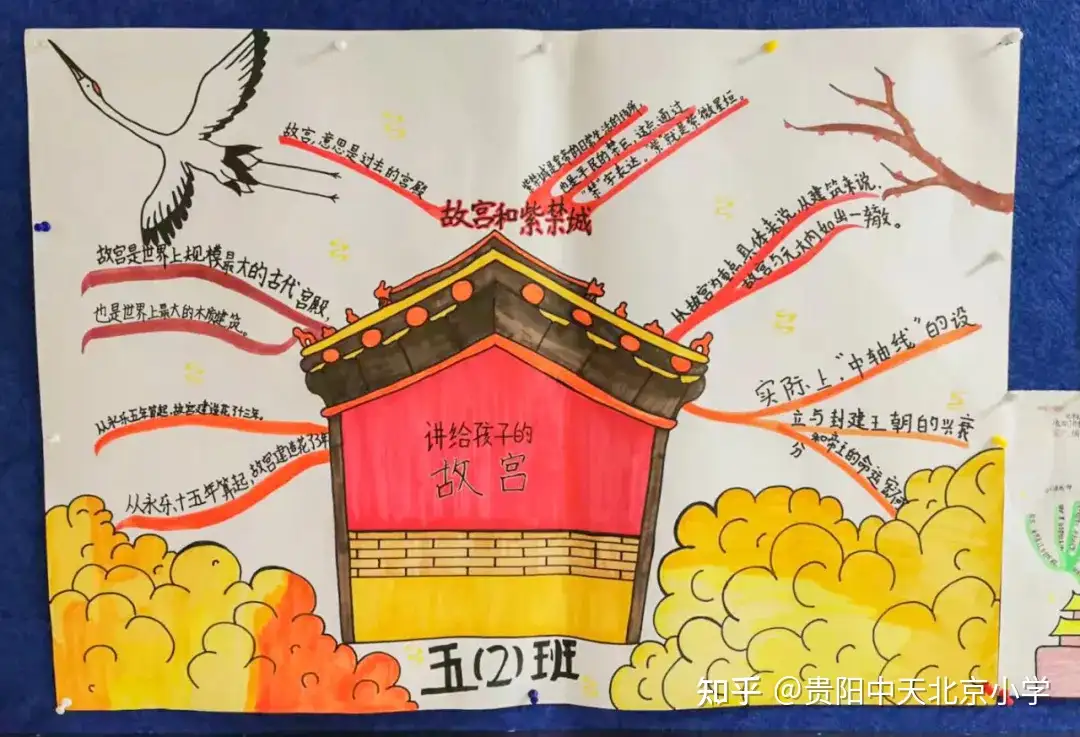 故宫,意思是过去的宫殿
紫禁城是皇帝的日常生活的场所,
也是平民的禁区。这点通过
"禁"字表达。"紫"就是紫微星恒。
故宫和紫禁城
故宫是世界上规模最大的古代宫殿,
也是世界上最大的木质建筑。
从故宫为重点具体来说,从建筑来说,
故宫与元大内如出一辙。
实际上,"中轴线"的设
立与封建王朝的兴衰
和帝王的命运密不可
分
从永乐五年算起,故宫建设花了十三年。
从永乐十五年算起,故宫建造花了3年
讲给孩子的
故宫
五(2)班
知乎 @贵阳中天北京小学